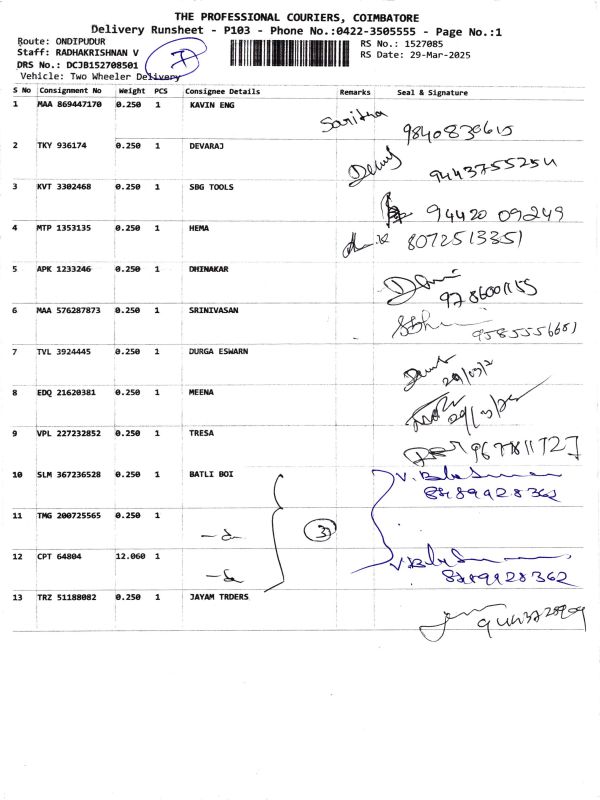 THE PROFESSIONAL COURIERS, COIMBATORE
Delivery Runsheet - P103 - Phone No.:0422-3505555 - Page No.:1
Route: ONDIPUDUR
RS No.: 1527085
Staff: RADHAKRISHNAN V
RS Date: 29-Mar-2025
DRS No.: DCJB152708501
7
Vehicle: Two Wheeler Delivery
S No Consignment No Weight PCS Consignee Details Remarks Seal & Signature
1 MAA 869447170 0.250 1 KAVIN ENG Saritha 9840830615
2 TKY 936174 0.250 1 DEVARAJ 9443755254
3 KVT 3302468 0.250 1 SBG TOOLS 94420 09249
4 MTP 1353135 0.250 1 HEMA 8072513351
5 APK 1233246 0.250 1 DHINAKAR
6 MAA 576287873 0.250 1 SRINIVASAN
7 TVL 3924445 0.250 1 DURGA ESWARN
8 EDQ 21620381 0.250 1 MEENA
9 VPL 227232852 0.250 1 TRESA 9677811727
10 SLM 367236528 0.250 1 BATLI BOI 8489928362
11 TMG 200725565 0.250 1 3
12 CPT 64804 12.060 1 8489928362
13 TRZ 51188082 0.250 1 JAYAM TRDERS